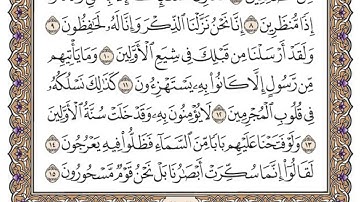 إِذًا مُّنظَرِينَ ٨ إِنَّا نَحْنُ نَزَّلْنَا ٱلذِّكْرَ وَإِنَّا لَهُۥ لَحَٰفِظُونَ ٩
وَلَقَدْ أَرْسَلْنَا مِن قَبْلِكَ فِى شِيَعِ ٱلْأَوَّلِينَ ١٠ وَمَا يَأْتِيهِم
مِّن رَّسُولٍ إِلَّا كَانُوا۟ بِهِۦ يَسْتَهْزِءُونَ ١١ كَذَٰلِكَ نَسْلُكُهُۥ
فِى قُلُوبِ ٱلْمُجْرِمِينَ ١٢ لَا يُؤْمِنُونَ بِهِۦ وَقَدْ خَلَتْ سُنَّةُ ٱلْأَوَّلِينَ
١٣ وَلَوْ فَتَحْنَا عَلَيْهِم بَابًا مِّنَ ٱلسَّمَآءِ فَظَلُّوا۟ فِيهِ يَعْرُجُونَ ١٤
لَقَالُوٓا۟ إِنَّمَا سُكِّرَتْ أَبْصَٰرُنَا بَلْ نَحْنُ قَوْمٌ مَّسْحُورُونَ ١٥